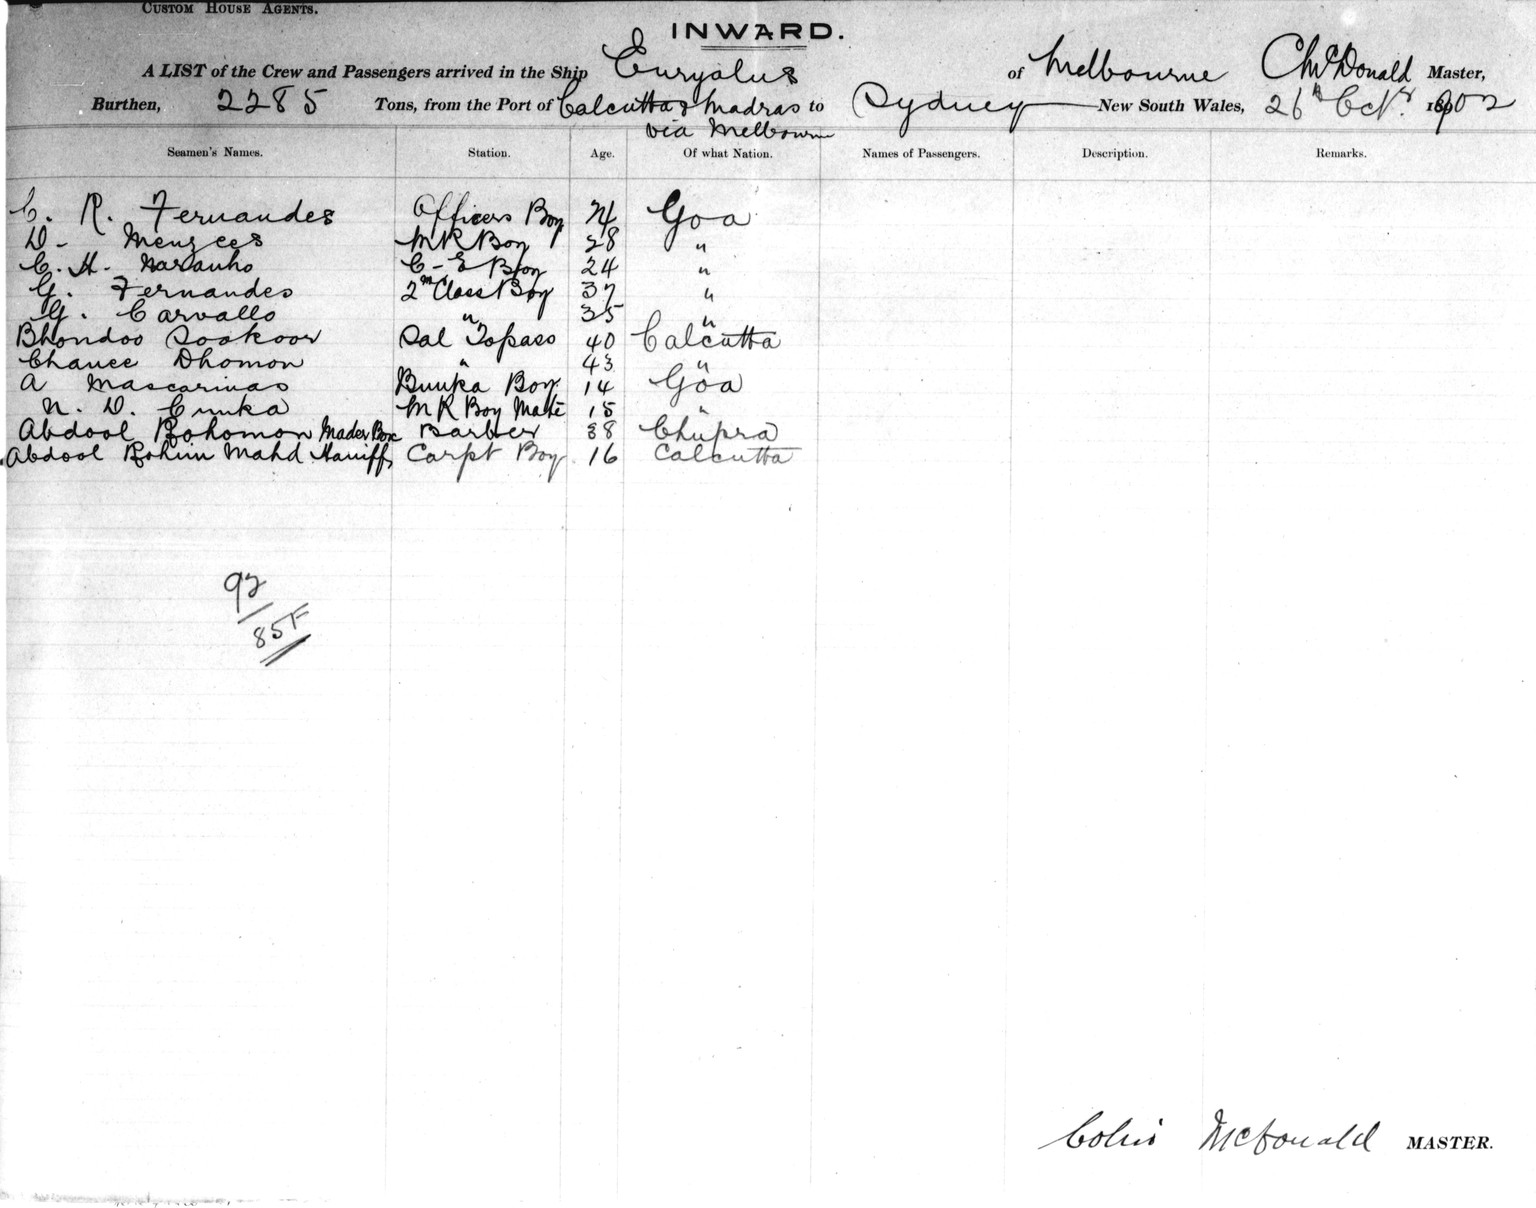 CUSTOM HOUSE AGENTS.
INWARD.
A LIST of the Crew and Passengers arrived in the Ship Euryalus of Melbourne C McDonald Master,
Burthen, 2285 Tons, from the Port of Calcutta & Madras to Sydney New South Wales, 26th Octr. 1902
via Melbourne
Seamen's Names. Station. Age. Of what Nation. Names of Passengers. Description. Remarks.
C. R. Fernandes Officers Boy 24 Goa
D. Menzees M R Boy 28 "
C. H. Naranho C - E Boy 24 "
G. Fernandes 2nd Class Boy 37 "
G. Carvallo " 35 "
Bhondoo Sookoor Sal Topass 40 Calcutta
Chance Dhomon " 43 "
A Mascarinas Bunka Boy 14 Goa
N. D. Cunka M R Boy Mate 15 "
Abdool Rohomon Mader Box Barber 38 Chupra
Abdool Rohim Mahd Haniff Carpt Boy 16 Calcutta
92
85F
Colin McDonald MASTER.